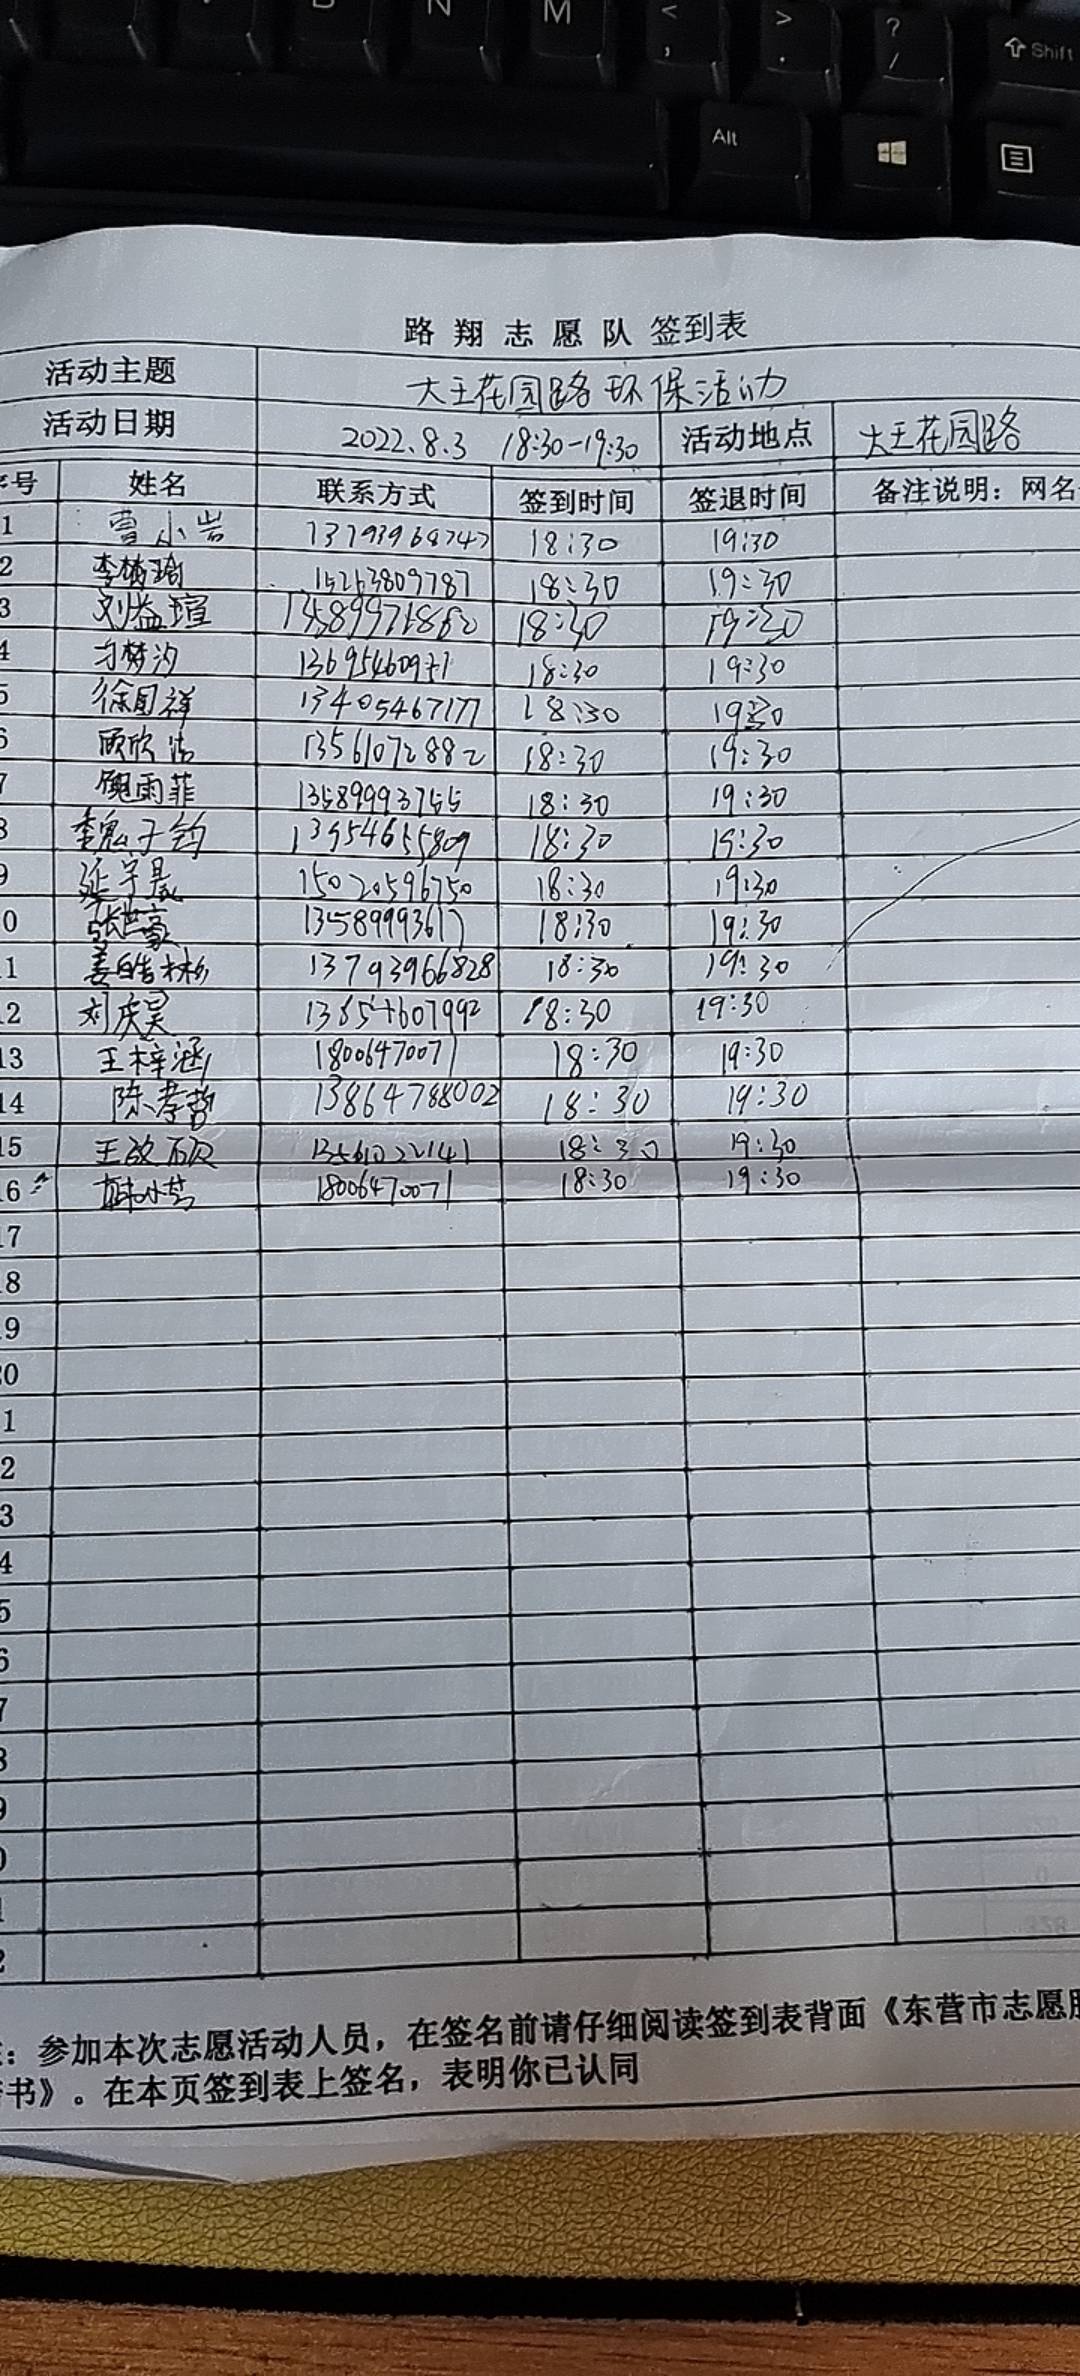 N
M
<
,
>
.
?
/
Shift
Alt
路翔志愿队 签到表
活动主题 大王花园路环保活动
活动日期 2022.8.3 18:30-19:30 活动地点 大王花园路
序号 姓名 联系方式 签到时间 签退时间 备注说明：网名
1 曹小岩 18:30 19:30
2 李梦瑜 15263809787 18:30 19:30
3 刘益瑄 18:30 19:30
4 刁梦汐 18:30 19:30
5 徐国祥 13405467177 18:30 19:30
6 顾欣洁 13561072882 18:30 19:30
7 魏雨菲 13589993755 18:30 19:30
8 李魏子钧 13954655809 18:30 19:30
9 延宇晟 15020596750 18:30 19:30
0 张芸豪 13589993617 18:30 19:30
1 姜皓彬 13793966828 18:30 19:30
2 刘庆昊 18:30 19:30
13 王梓涵 18006470071 18:30 19:30
14 陈孝哲 13864788002 18:30 19:30
15 王政硕 13561022141 18:30 19:30
6 韩小芸 18006470071 18:30 19:30
17
18
19
20
1
2
3
4
5
6
7
8
9
0
1
2
：参加本次志愿活动人员，在签名前请仔细阅读签到表背面《东营市志愿服
书》。在本页签到表上签名，表明你已认同